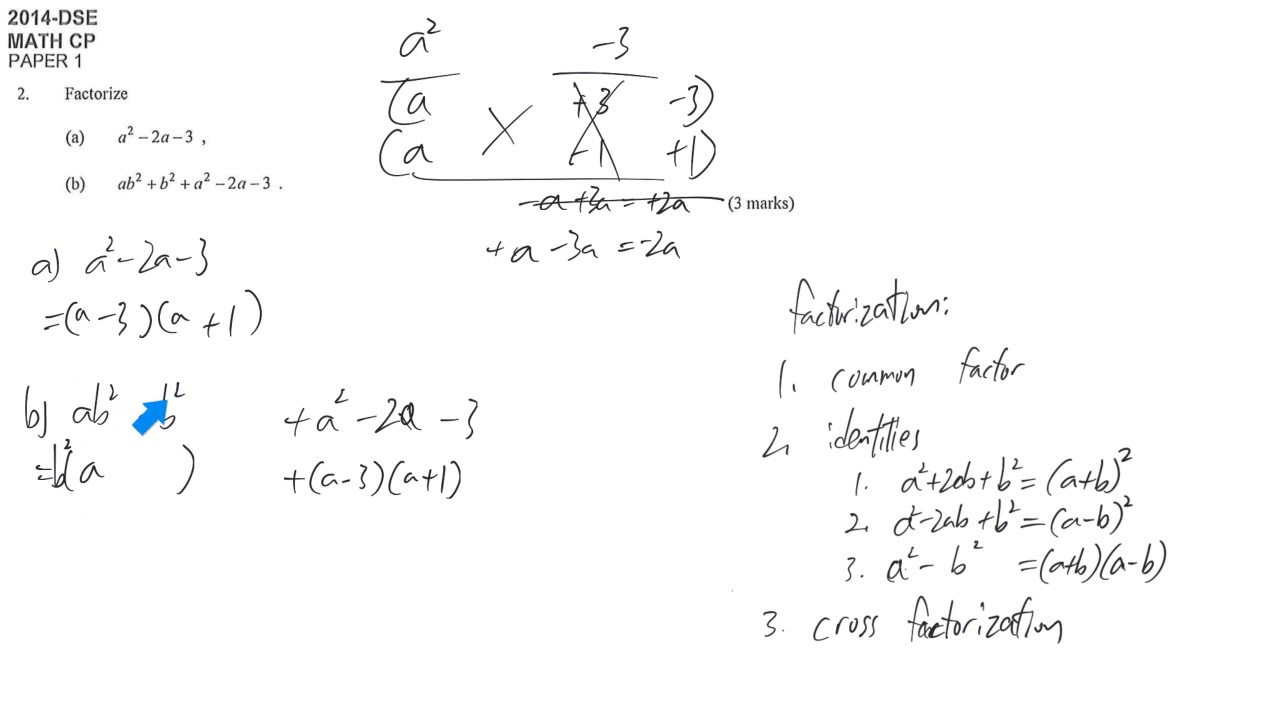 2014-DSE
MATH CP
PAPER 1
2. Factorize
(a) a² – 2a – 3 ,
(b) ab² + b² + a² – 2a – 3 .
(3 marks)
a² -3
(a +3 -3)
(a -1 +1)
-a +3a = +2a
+a -3a = -2a
a) a² - 2a - 3
= (a - 3)(a + 1)
b) ab² b² + a² - 2a - 3
= b²(a ) + (a-3)(a+1)
factorization:
1. common factor
2. identities
1. a²+2ab+b² = (a+b)²
2. a²-2ab+b² = (a-b)²
3. a² - b² = (a+b)(a-b)
3. cross factorization